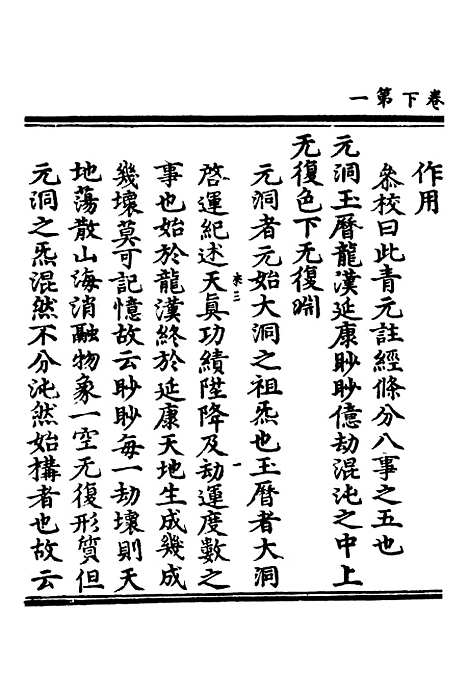 卷下第一
作用
叅校曰此青元註經條分八事之五也
元洞玉曆龍漢延康眇眇億劫混沌之中上
无復色下无復淵
元洞者元始大洞之祖炁也玉曆者大洞
啓運紀述天真功績陞降及劫運度數之
事也始於龍漢終於延康天地生成幾成
幾壞莫可記憶故云眇眇每一劫壞則天
地蕩散山海消融物象一空无復形質但
元洞之炁混然不分沌然始構者也故云